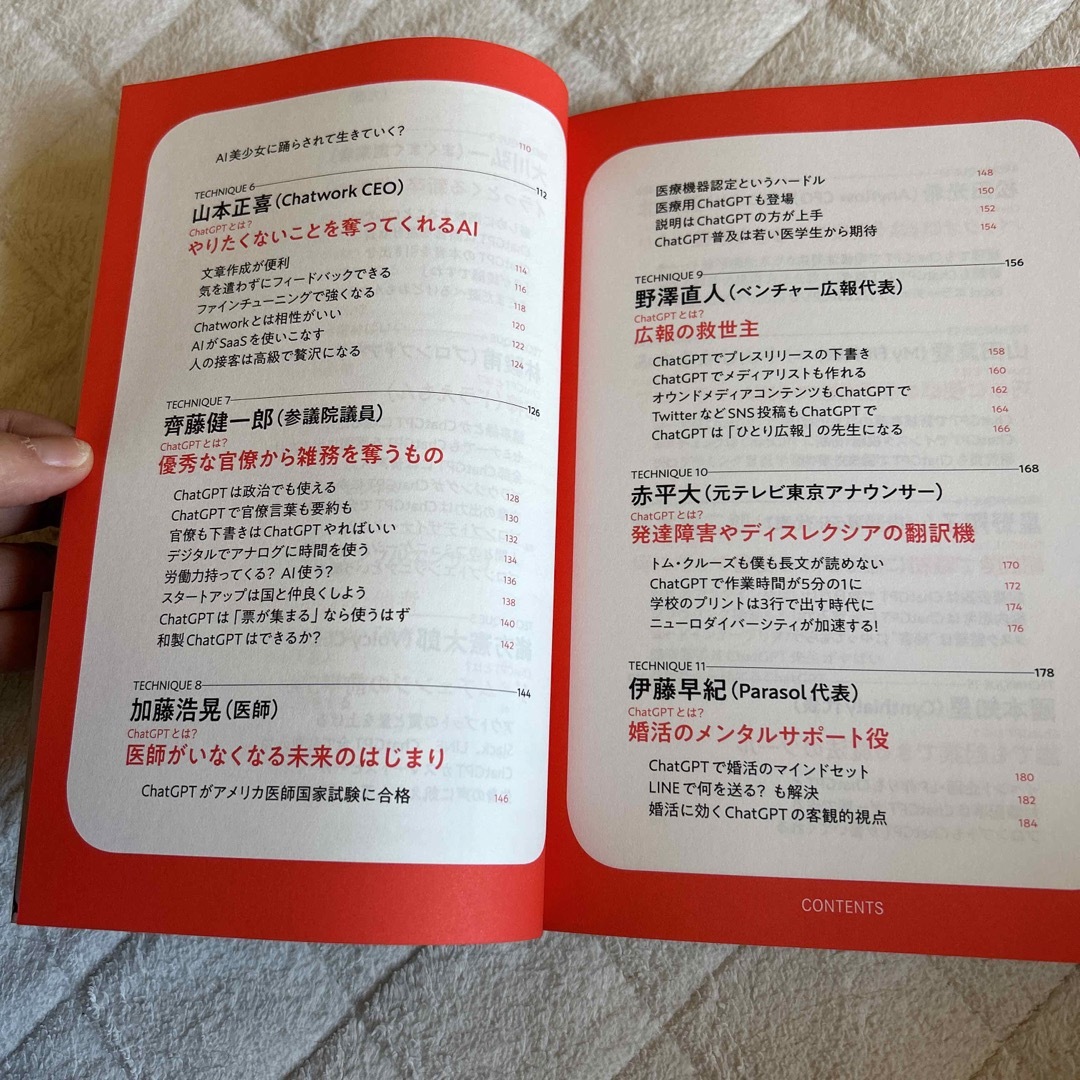 AI美少女に踊らされて生きていく? 110
TECHNIQUE 6 112
山本正喜(Chatwork CEO)
ChatGPTとは?
やりたくないことを奪ってくれるAI
文章作成が便利 114
気を遣わずにフィードバックできる 116
ファインチューニングで強くなる 118
Chatworkとは相性がいい 120
AIがSaaSを使いこなす 122
人の接客は高級で贅沢になる 124
TECHNIQUE 7 126
齊藤健一郎(参議院議員)
ChatGPTとは?
優秀な官僚から雑務を奪うもの
ChatGPTは政治でも使える 128
ChatGPTで官僚言葉も要約も 130
官僚も下書きはChatGPTやればいい 132
デジタルでアナログに時間を使う 134
労働力持ってくる? AI使う? 136
スタートアップは国と仲良くしよう 138
ChatGPTは「票が集まる」なら使うはず 140
和製ChatGPTはできるか? 142
TECHNIQUE 8 144
加藤浩晃(医師)
ChatGPTとは?
医師がいなくなる未来のはじまり
ChatGPTがアメリカ医師国家試験に合格 146
医療機器認定というハードル 148
医療用ChatGPTも登場 150
説明はChatGPTの方が上手 152
ChatGPT普及は若い医学生から期待 154
TECHNIQUE 9 156
野澤直人(ベンチャー広報代表)
ChatGPTとは?
広報の救世主
ChatGPTでプレスリリースの下書き 158
ChatGPTでメディアリストも作れる 160
オウンドメディアコンテンツもChatGPTで 162
TwitterなどSNS投稿もChatGPTで 164
ChatGPTは「ひとり広報」の先生になる 166
TECHNIQUE 10 168
赤平大(元テレビ東京アナウンサー)
ChatGPTとは?
発達障害やディスレクシアの翻訳機
トム・クルーズも僕も長文が読めない 170
ChatGPTで作業時間が5分の1に 172
学校のプリントは3行で出す時代に 174
ニューロダイバーシティが加速する! 176
TECHNIQUE 11 178
伊藤早紀(Parasol代表)
ChatGPTとは?
婚活のメンタルサポート役
ChatGPTで婚活のマインドセット 180
LINEで何を送る? も解決 182
婚活に効くChatGPTの客観的視点 184
CONTENTS